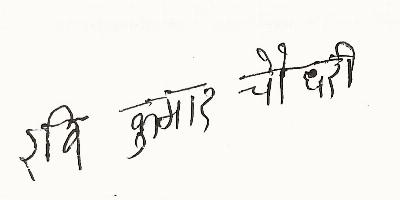 रवि कुमार चौधरी